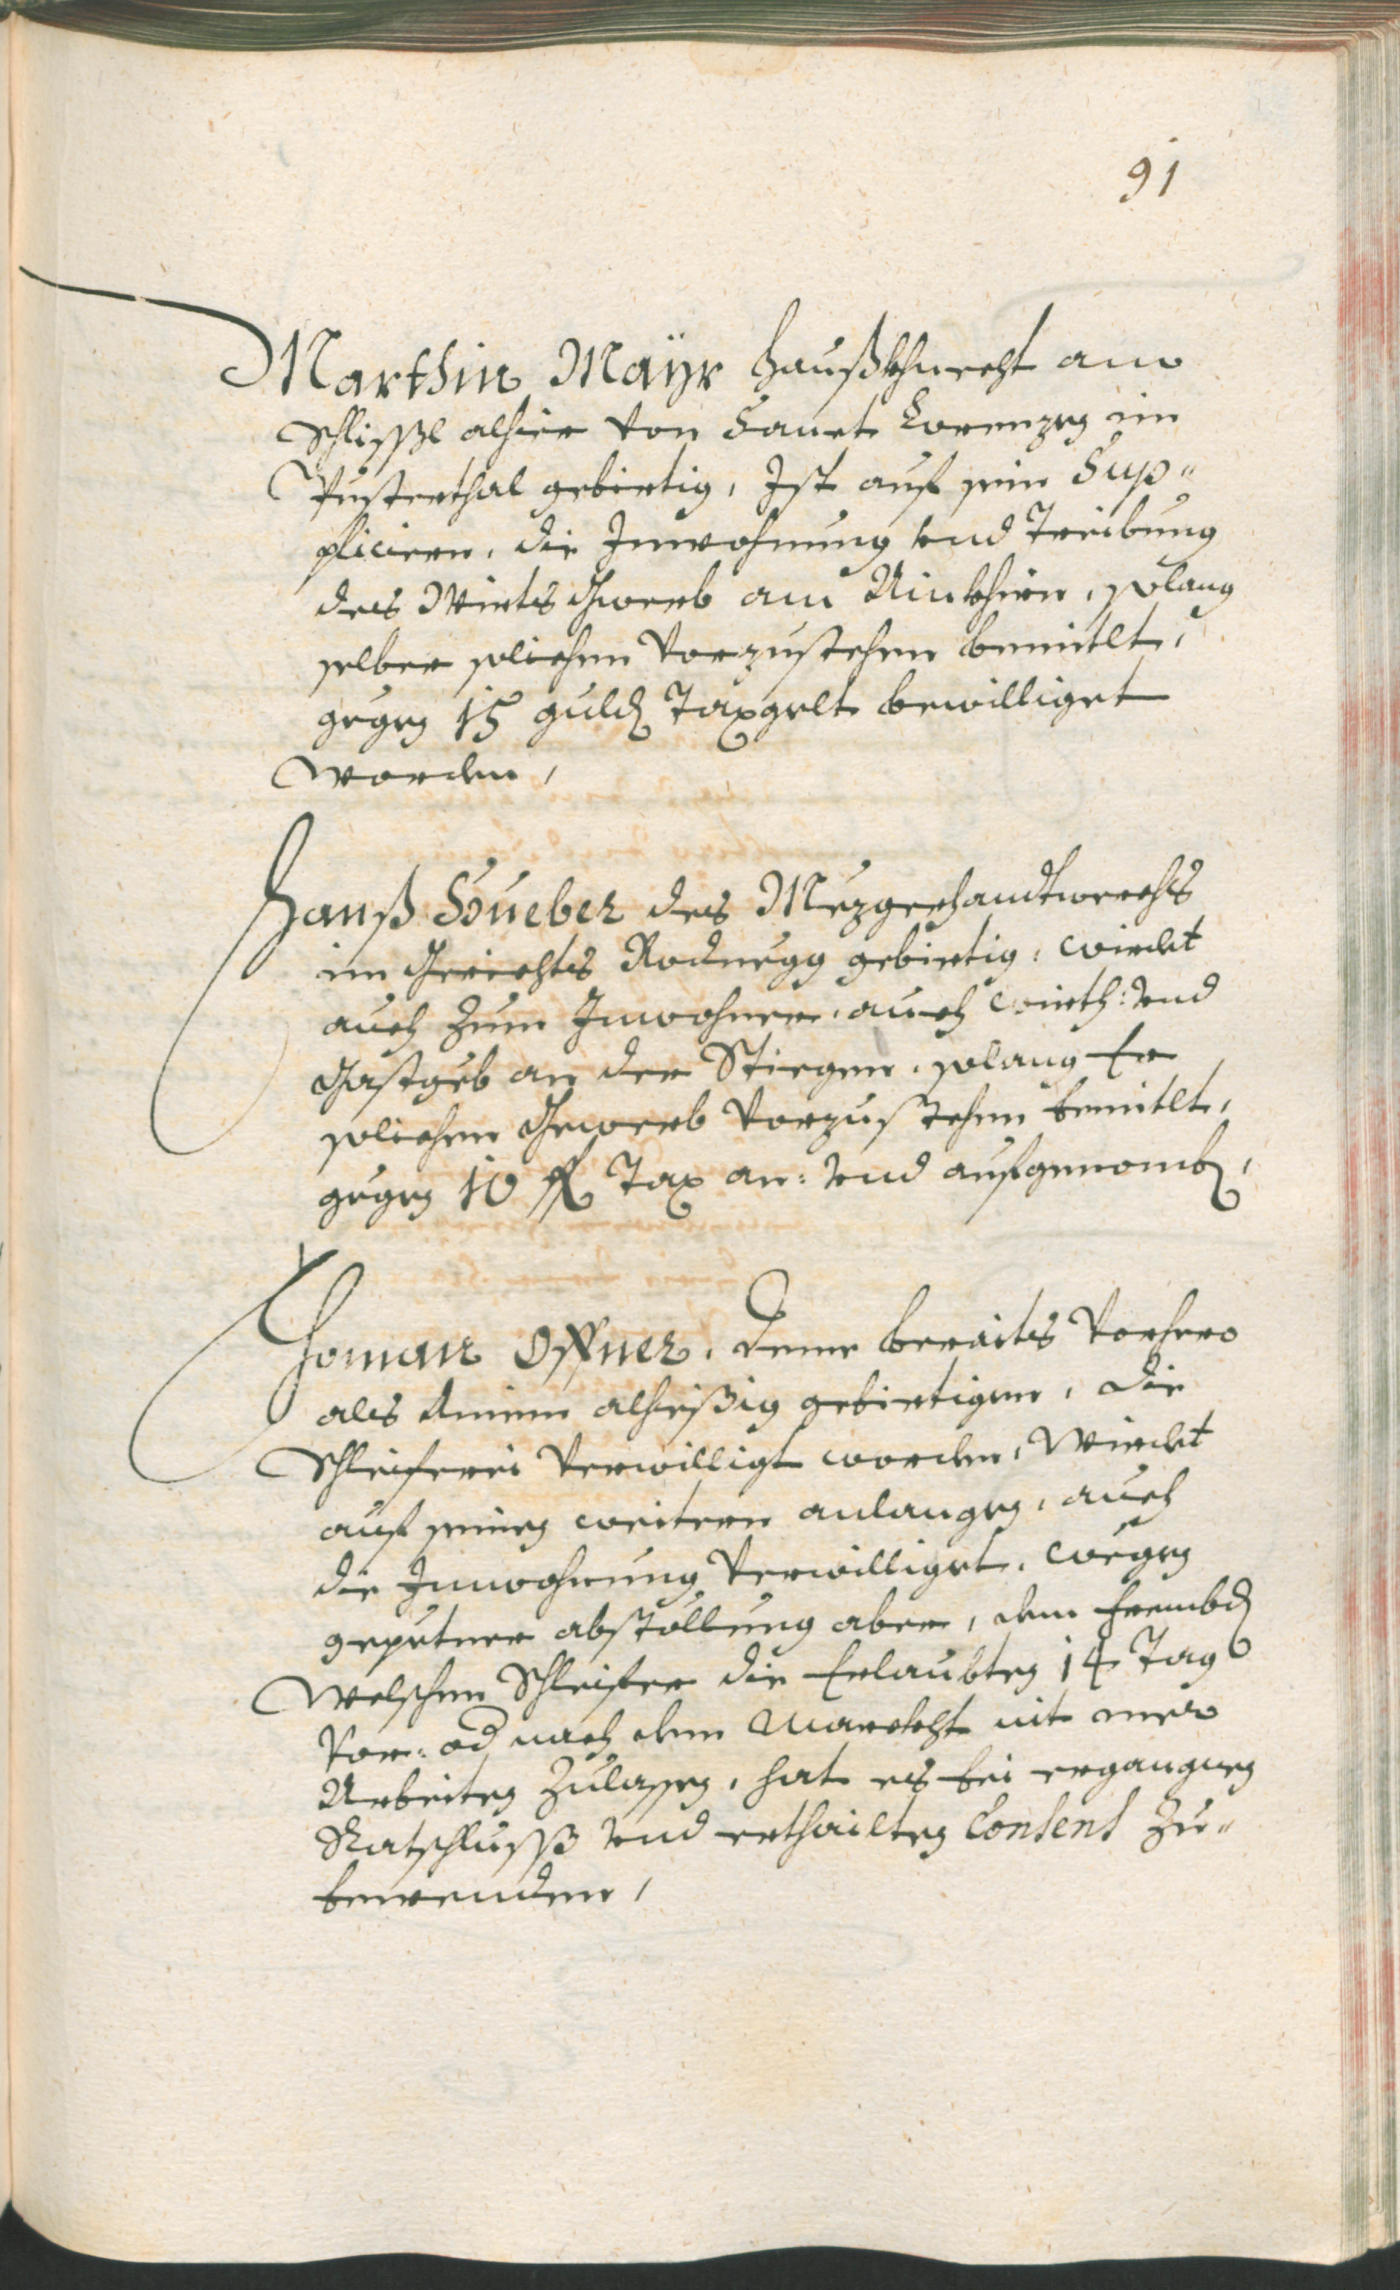 91
Marthin Mayr Haußkhnecht am
Schlissl alhier von Sanct Lorenzen im
Pusterthal gebirtig, Ist auf sein Sup¬
plicieren, die Inwohnung vnd Treibung
des Wirts Gwerb am Ainkhirn, solang
selber solichem vorzustehen bemitlt,
gegen 15 guld Taxgelt bewilliget
worden,
Hanß Hueber des Mezgerhandtwerchs
im Gerichts Rodnegg gebirtig, wirdet
auch zum Inwohner, auch Wirth: vnd
Gastgeb an der Stiegen, solang Er
solichem Gewerb vorzustehen bemitlt,
gegen 10 fl Tax an: vnd aufgenomben,
Thoman Offner, deme beraits vorhero
als Ainem alhießig gebirtigen, die
Schleiferei verwilligt worden, Wirdet
auf seines weitern anlangen, auch
die Inwohnung verwilliget, wegen
gepetner abstöllung aber, dem frembden
Welschen Schleifer die Erlaubten 14 Tag
vor: od nach dem Marckht nit mer
Arbeiten zulassen, hat es bei ergangnen
Ratschluss vnd erthailten Consens zu¬
bewenden,